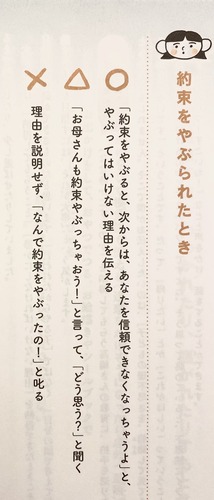 約束をやぶられたとき
○
「約束をやぶると、次からは、あなたを信頼できなくなっちゃうよ」と、
やぶってはいけない理由を伝える
△
「お母さんも約束やぶっちゃおう！」と言って、「どう思う？」と聞く
×
理由を説明せず、「なんで約束をやぶったの！」と叱る